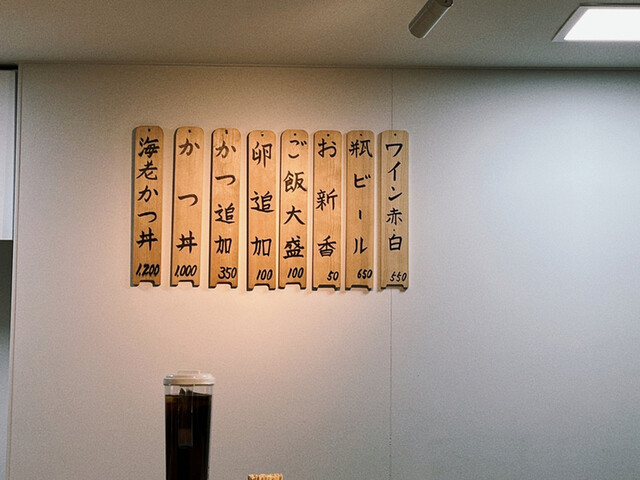 ワイン赤・白 550
瓶ビール 650
お新香 50
ご飯大盛 100
卵追加 100
かつ追加 350
かつ丼 1,000
海老かつ丼 1,200